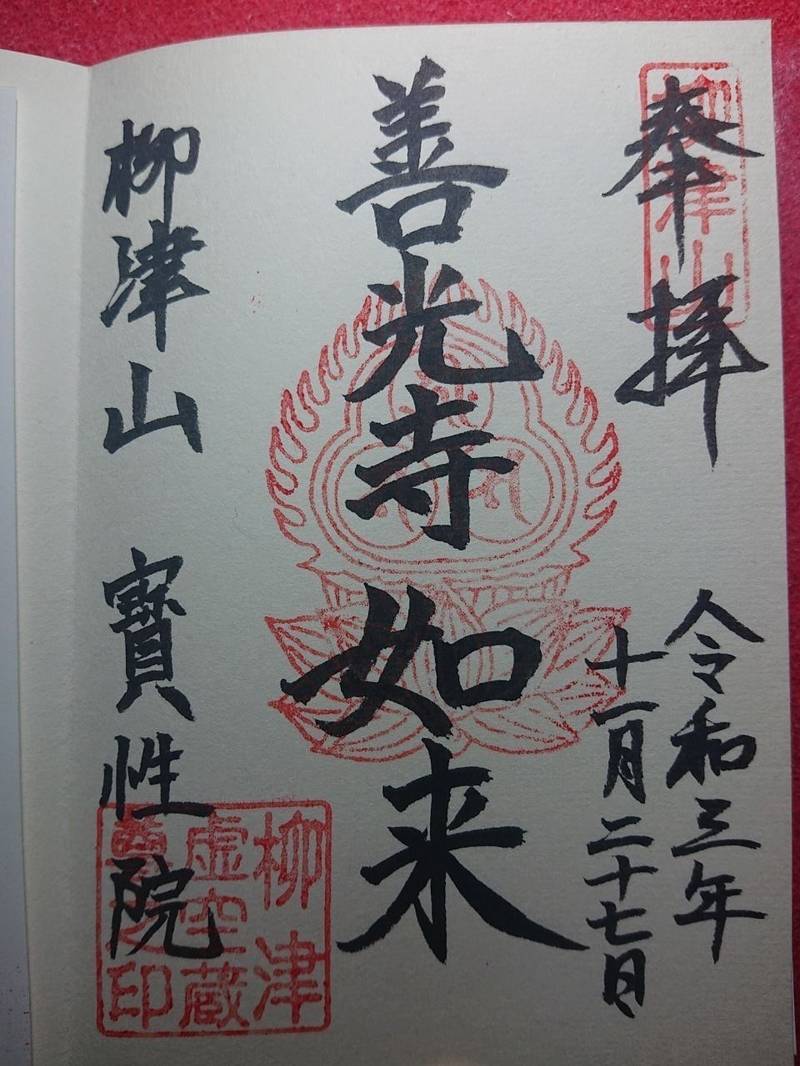 奉拝
柳津山
令和三年
十一月二十七日
善光寺如来
柳津山 寳性院
柳津
虚空蔵
尊之印